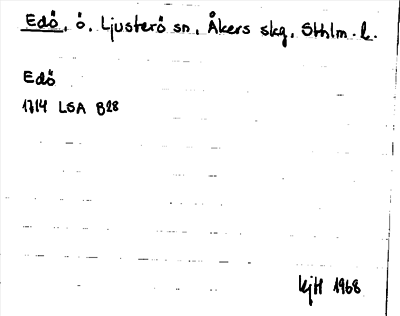 Edö, ö, Ljusterö sn, Åkers skg, Sthlm. l.
Edö
1714 LSA B28
KjH 1968